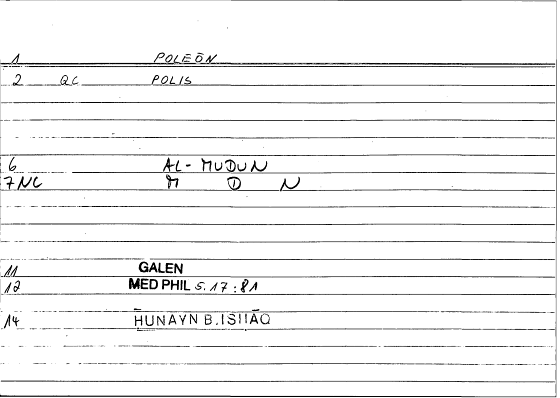 1 POLEŌN
2 QC POLIS
6 AL-MUDUN
7 NC M D N
11 GALEN
12 MED PHIL 5.17:81
14 ḤUNAYN B.ISḤĀQ